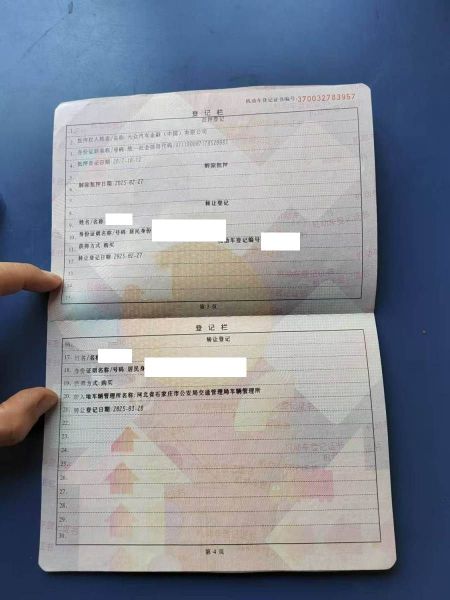 机动车登记证书编号:370032783957
登记栏
抵押登记
1.
2. 抵押权人姓名/名称:大众汽车金融(中国)有限公司
3. 身份证明名称/号码:统一社会信用代码/
4. 抵押登记日期:
5. 解除抵押
6.
7. 解除抵押日期:2025-02-27
8. 转让登记
9. 姓名/名称
10. 身份证明名称/号码:居民身份
11. 获得方式:购买 机动车登记编号
12. 转让登记日期:2025-02-27
13.
14.
15.
第 3 页
登记栏
16. 转让登记
17. 姓名/名称
18. 身份证明名称/号码:居民身
19. 获得方式:购买
20. 转入地车辆管理所名称:河北省石家庄市公安局交通管理局车辆管理所
21. 转让登记日期:2025-03-20
22.
23.
24.
25.
26.
27.
28.
29.
30.
第 4 页